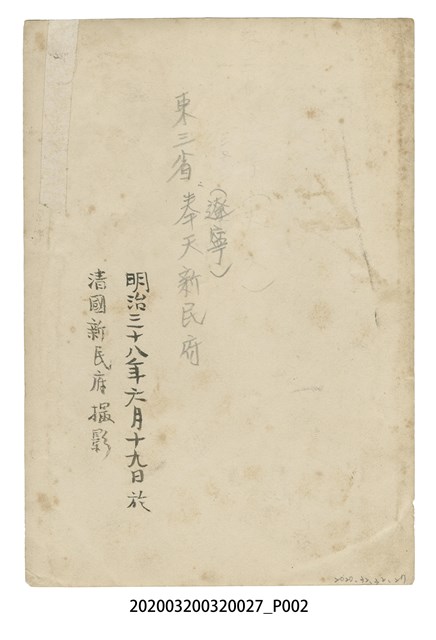 東三省、奉天新民府
（遼寧）
明治三十八年六月十九日於
清國新民府撮影
2020.32.32.27
202003200320027_P002